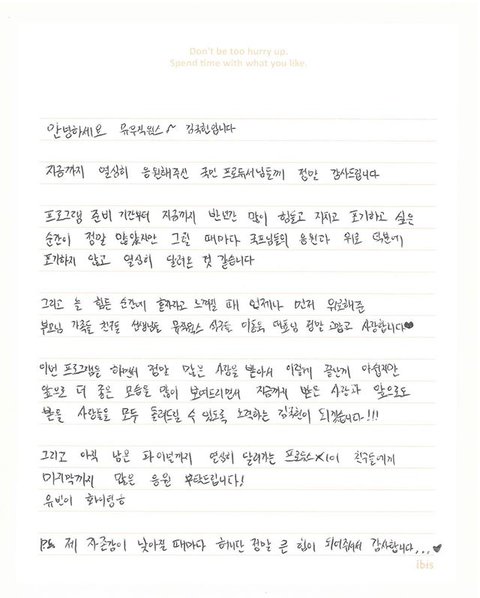 Don't be too hurry up.
Spend time with what you like.
안녕하세요 뮤직웍스~ 김국헌입니다
지금까지 열심히 응원해주신 국민 프로듀서님들께 정말 감사드립니다
프로그램 준비 기간부터 지금까지 반년간 많이 힘들고 지치고 포기하고 싶은
순간이 정말 많았지만 그럴 때마다 국프님들의 응원과 위로 덕분에
포기하지 않고 열심히 달려온 것 같습니다
그리고 늘 힘든 순간에 혼자라고 느껴질 때 언제나 먼저 위로해준
부모님 가족들 친구들 선생님들 뮤직웍스 식구들 이동들 대표님 정말 그립고 사랑합니다♥
이번 프로그램을 하면서 정말 많은 사랑을 받아서 이렇게 끝난게 아쉽지만
앞으로 더 좋은 모습을 많이 보여드리면서 지금까지 받은 사랑과 앞으로도
받을 사랑들을 모두 돌려드릴 수 있도록 노력하는 김국헌이 되겠습니다!!!
그리고 아직 남은 파이널까지 열심히 달려가는 프로듀스X101 친구들에게
마지막까지 많은 응원 부탁드립니다!
유빈이 화이팅ㅎ
P.S 제 자존감이 낮아질 때마다 허니단 정말 큰 힘이 되어주셔서 감사합니다...♥
ibis